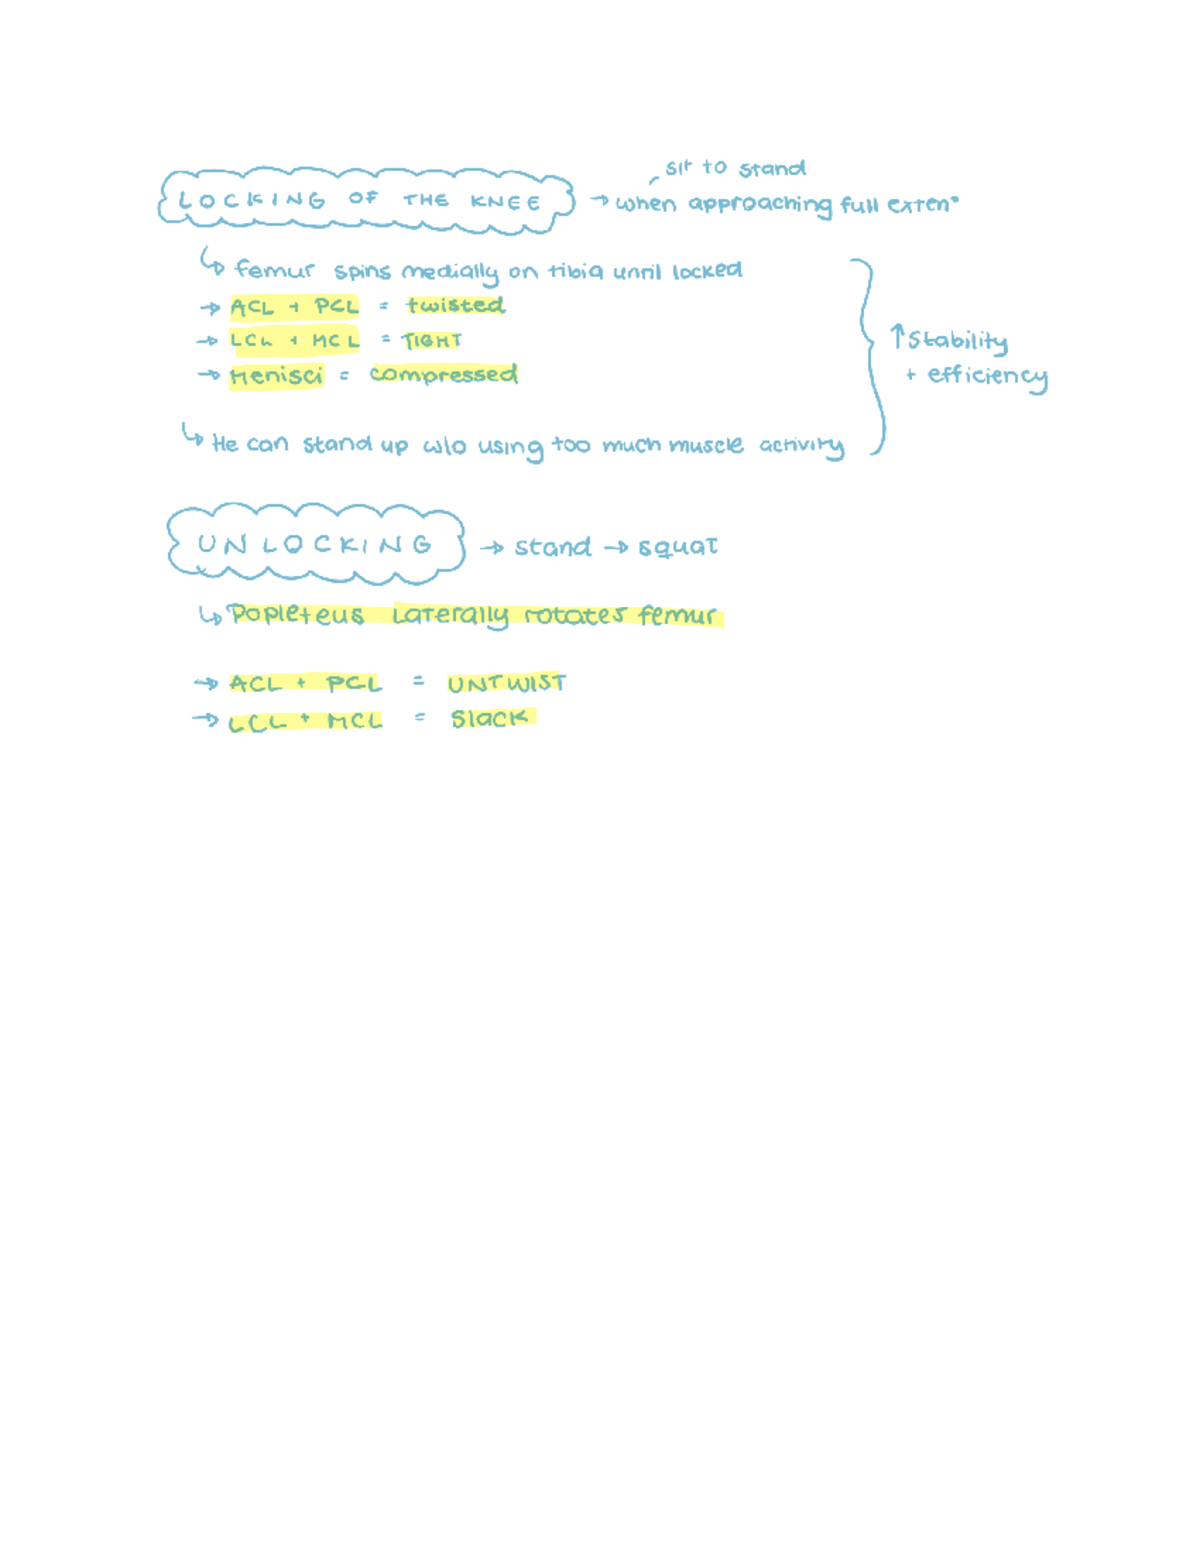 sit to stand
LOCKING OF THE KNEE → when approaching full exten°
↳ femur spins medially on tibia until locked
→ ACL + PCL = twisted
→ LCL + MCL = TIGHT
→ Menisci = compressed
↑ Stability
+ efficiency
↳ He can stand up w/o using too much muscle activity
UNLOCKING → stand → squat
↳ Popleteus Laterally rotates femur
→ ACL + PCL = UNTWIST
→ LCL + MCL = Slack